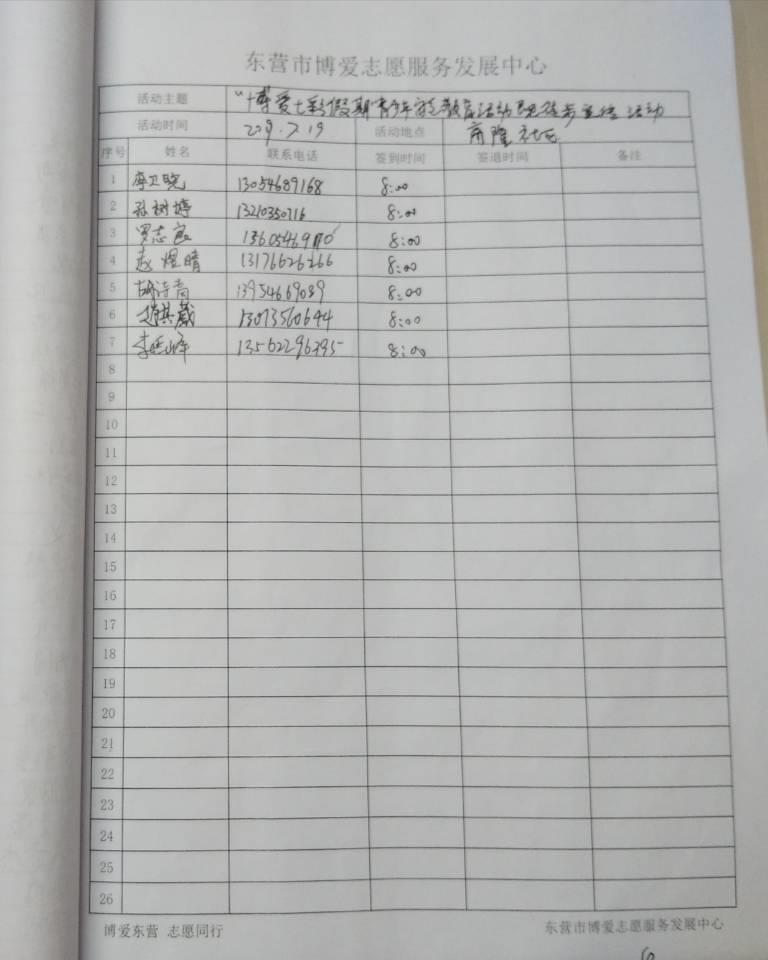 东营市博爱志愿服务发展中心
活动主题 "博爱七彩假期"青少年 教育活动 宣传 活动
活动时间 2019.7.19 活动地点 商隆社区
序号 姓名 联系电话 签到时间 签退时间 备注
1 13054689168 8:00
2 孙树婷 13210350716 8:00
3 罗志良 8:00
4 赵煜晴 8:00
5 胡诗青 13954669089 8:00
6 13073560644 8:00
7 李延峰 8:00
8
9
10
11
12
13
14
15
16
17
18
19
20
21
22
23
24
25
26
博爱东营 志愿同行 东营市博爱志愿服务发展中心